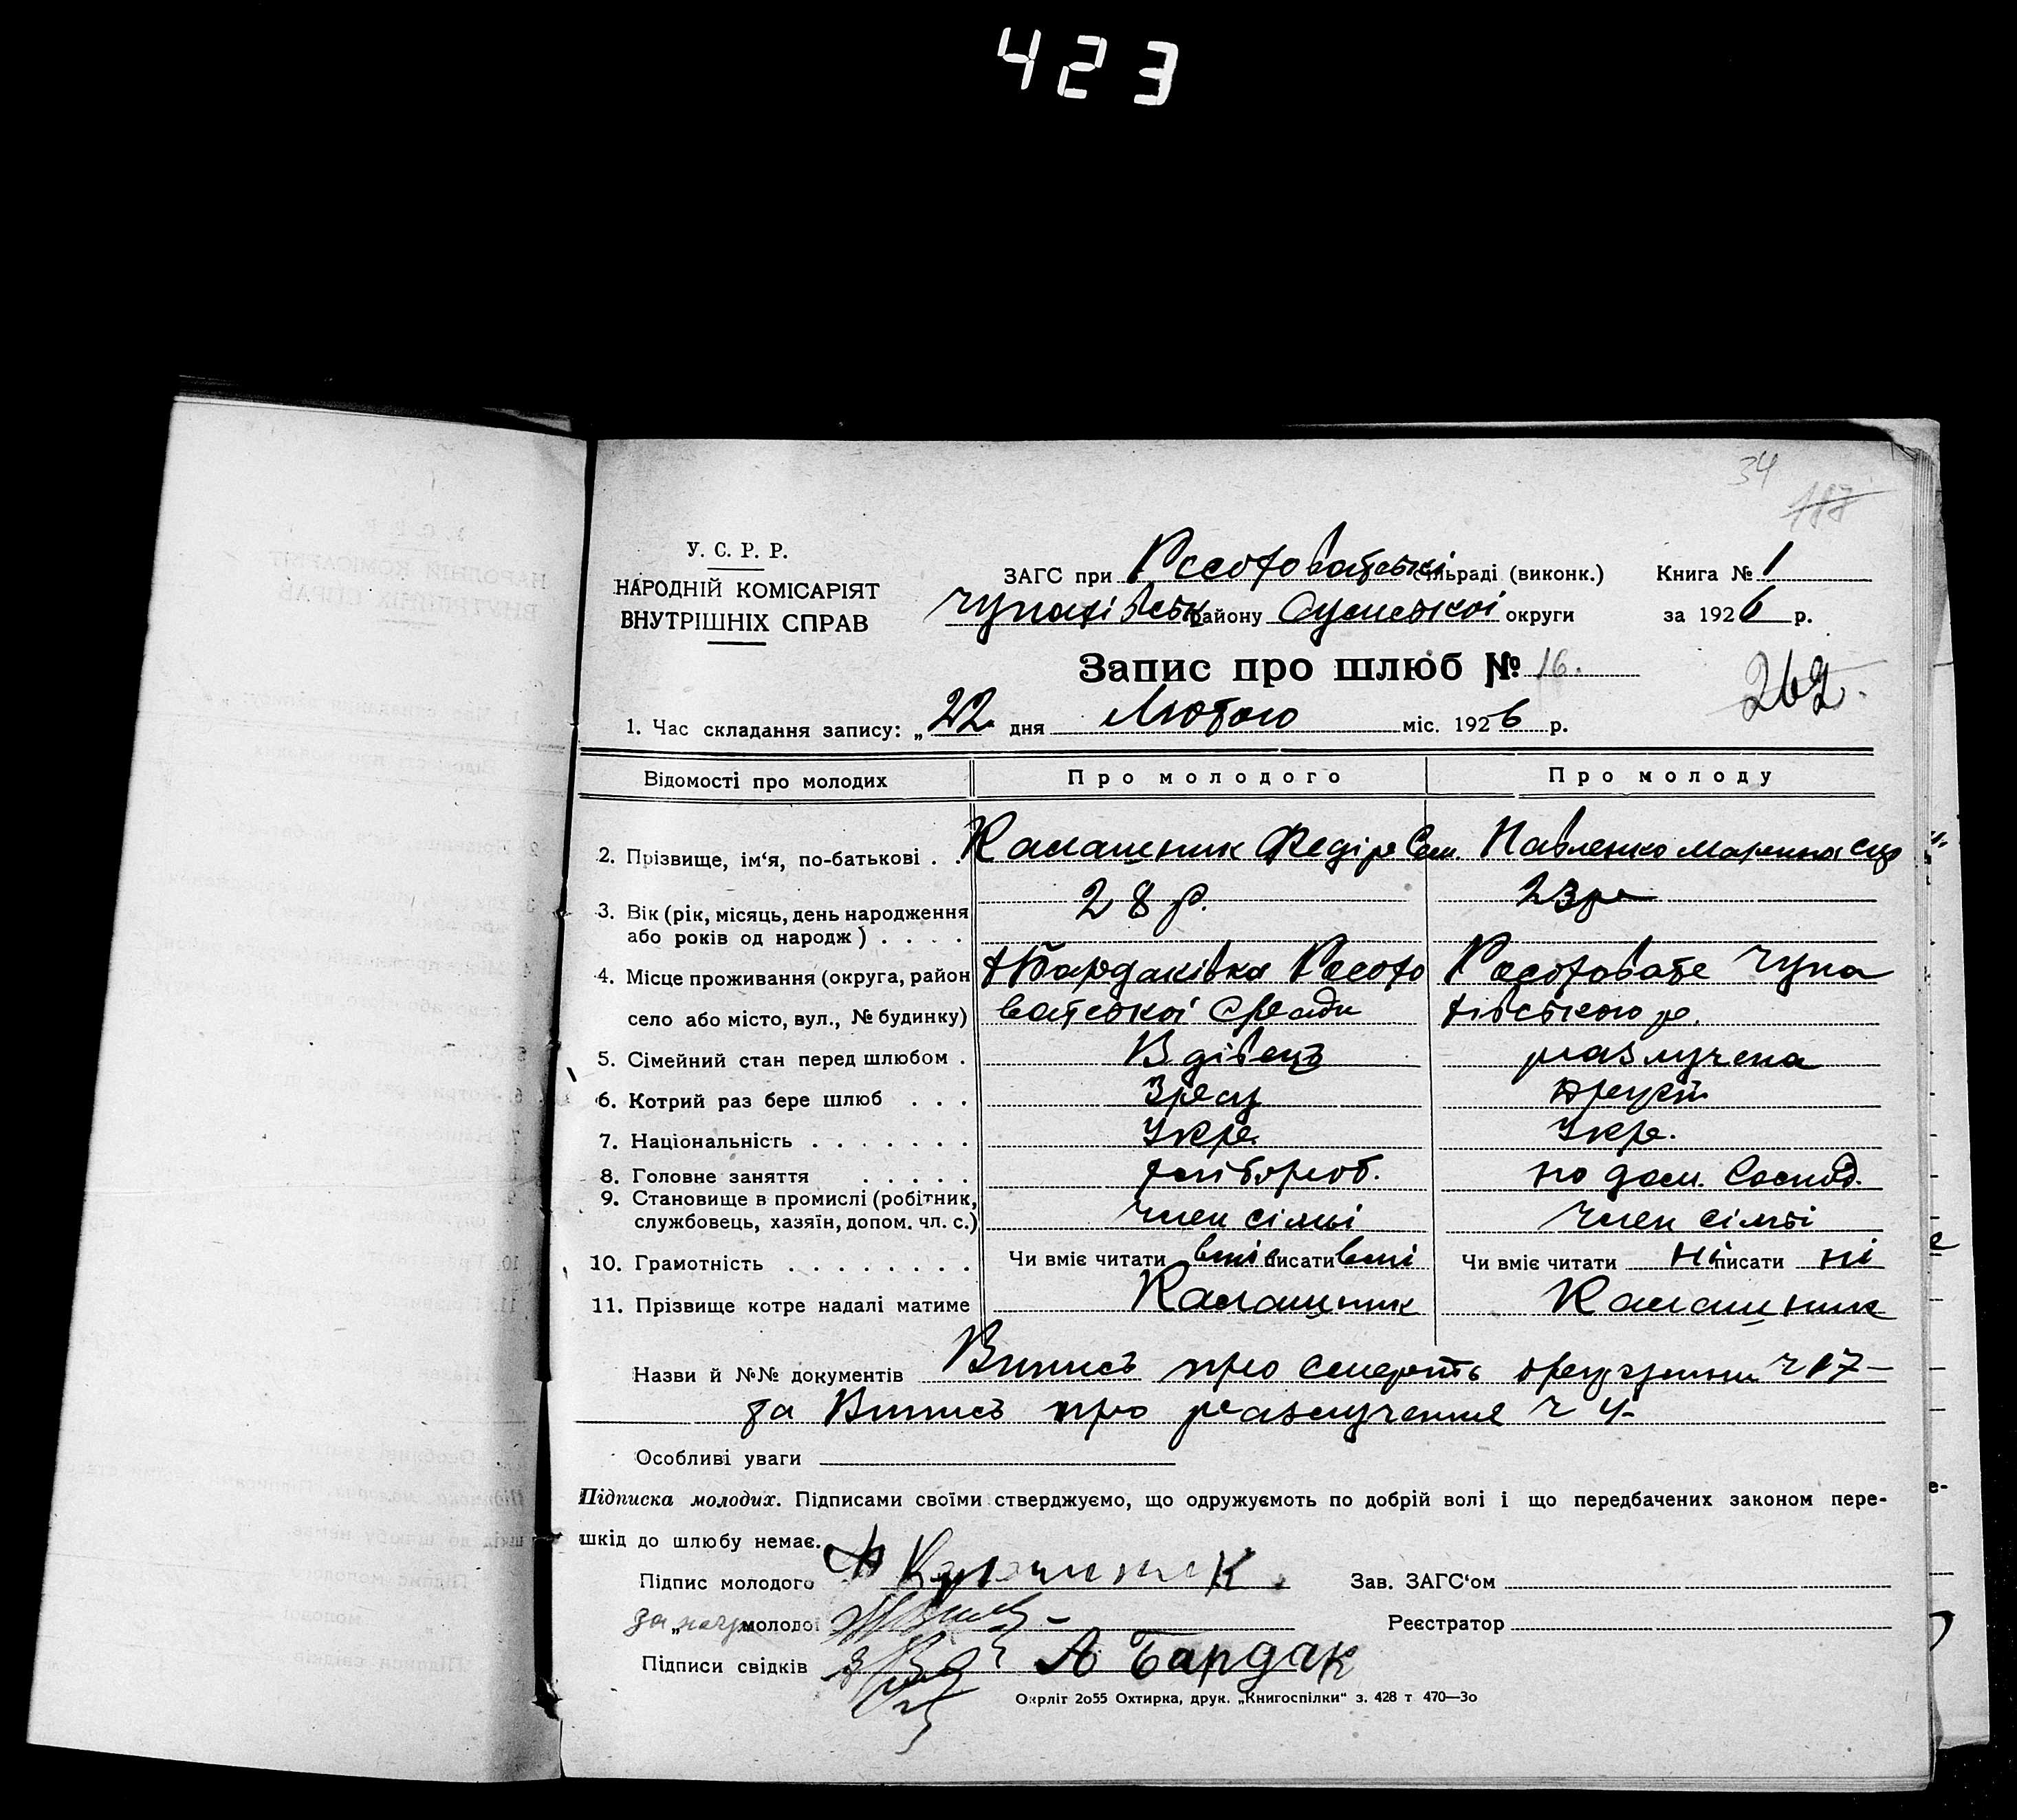 423
34
У. С. Р. Р.
НАРОДНІЙ КОМІСАРІЯТ
ВНУТРІШНІХ СПРАВ
ЗАГС при сільраді (виконк.) Книга № 1
району Сумської округи за 1926 р.
Запис про шлюб № 16.
262.
1. Час складання запису: „22 дня Лютого міс. 1926 р.
Відомості про молодих Про молодого Про молоду
2. Прізвище, ім‘я, по-батькові . . Калашник Федір Сем. Павленко
3. Вік (рік, місяць, день народження 28 р. 23 р
або років од народж ) . . . .
4. Місце проживання (округа, район Бардаківка Росохо Росоховате Чупа
село або місто, вул., № будинку) ватської хівського р.
5. Сімейний стан перед шлюбом . Вдівець разлучена
6. Котрий раз бере шлюб . . .
7. Національність . . . . . . . Укр. Укр.
8. Головне заняття . . . . . хлібороб. по дом. Господ.
9. Становище в промислі (робітник,
службовець, хазяїн, допом. чл. с.) Член сімьі Член сімьі
10. Грамотність . . . . . . . . Чи вміє читати вміє писати вмі Чи вміє читати ні писати ні
11. Прізвище котре надалі матиме Калашник Калашник
Назви й №№ документів Випись про смерть ч 17 –
та Випись про разлучення ч 4-
Особливі уваги
Підписка молодих. Підписами своїми стверджуємо, що одружуємоть по добрій волі і що передбачених законом пере-
шкід до шлюбу немає.
Підпис молодого Калашник Зав. ЗАГС‘ом
за „ молодої Реєстратор
Підписи свідків А Бардак
Окрліт 2о55 Охтирка, друк. „Книгоспілки“ з. 428 т 470—3о